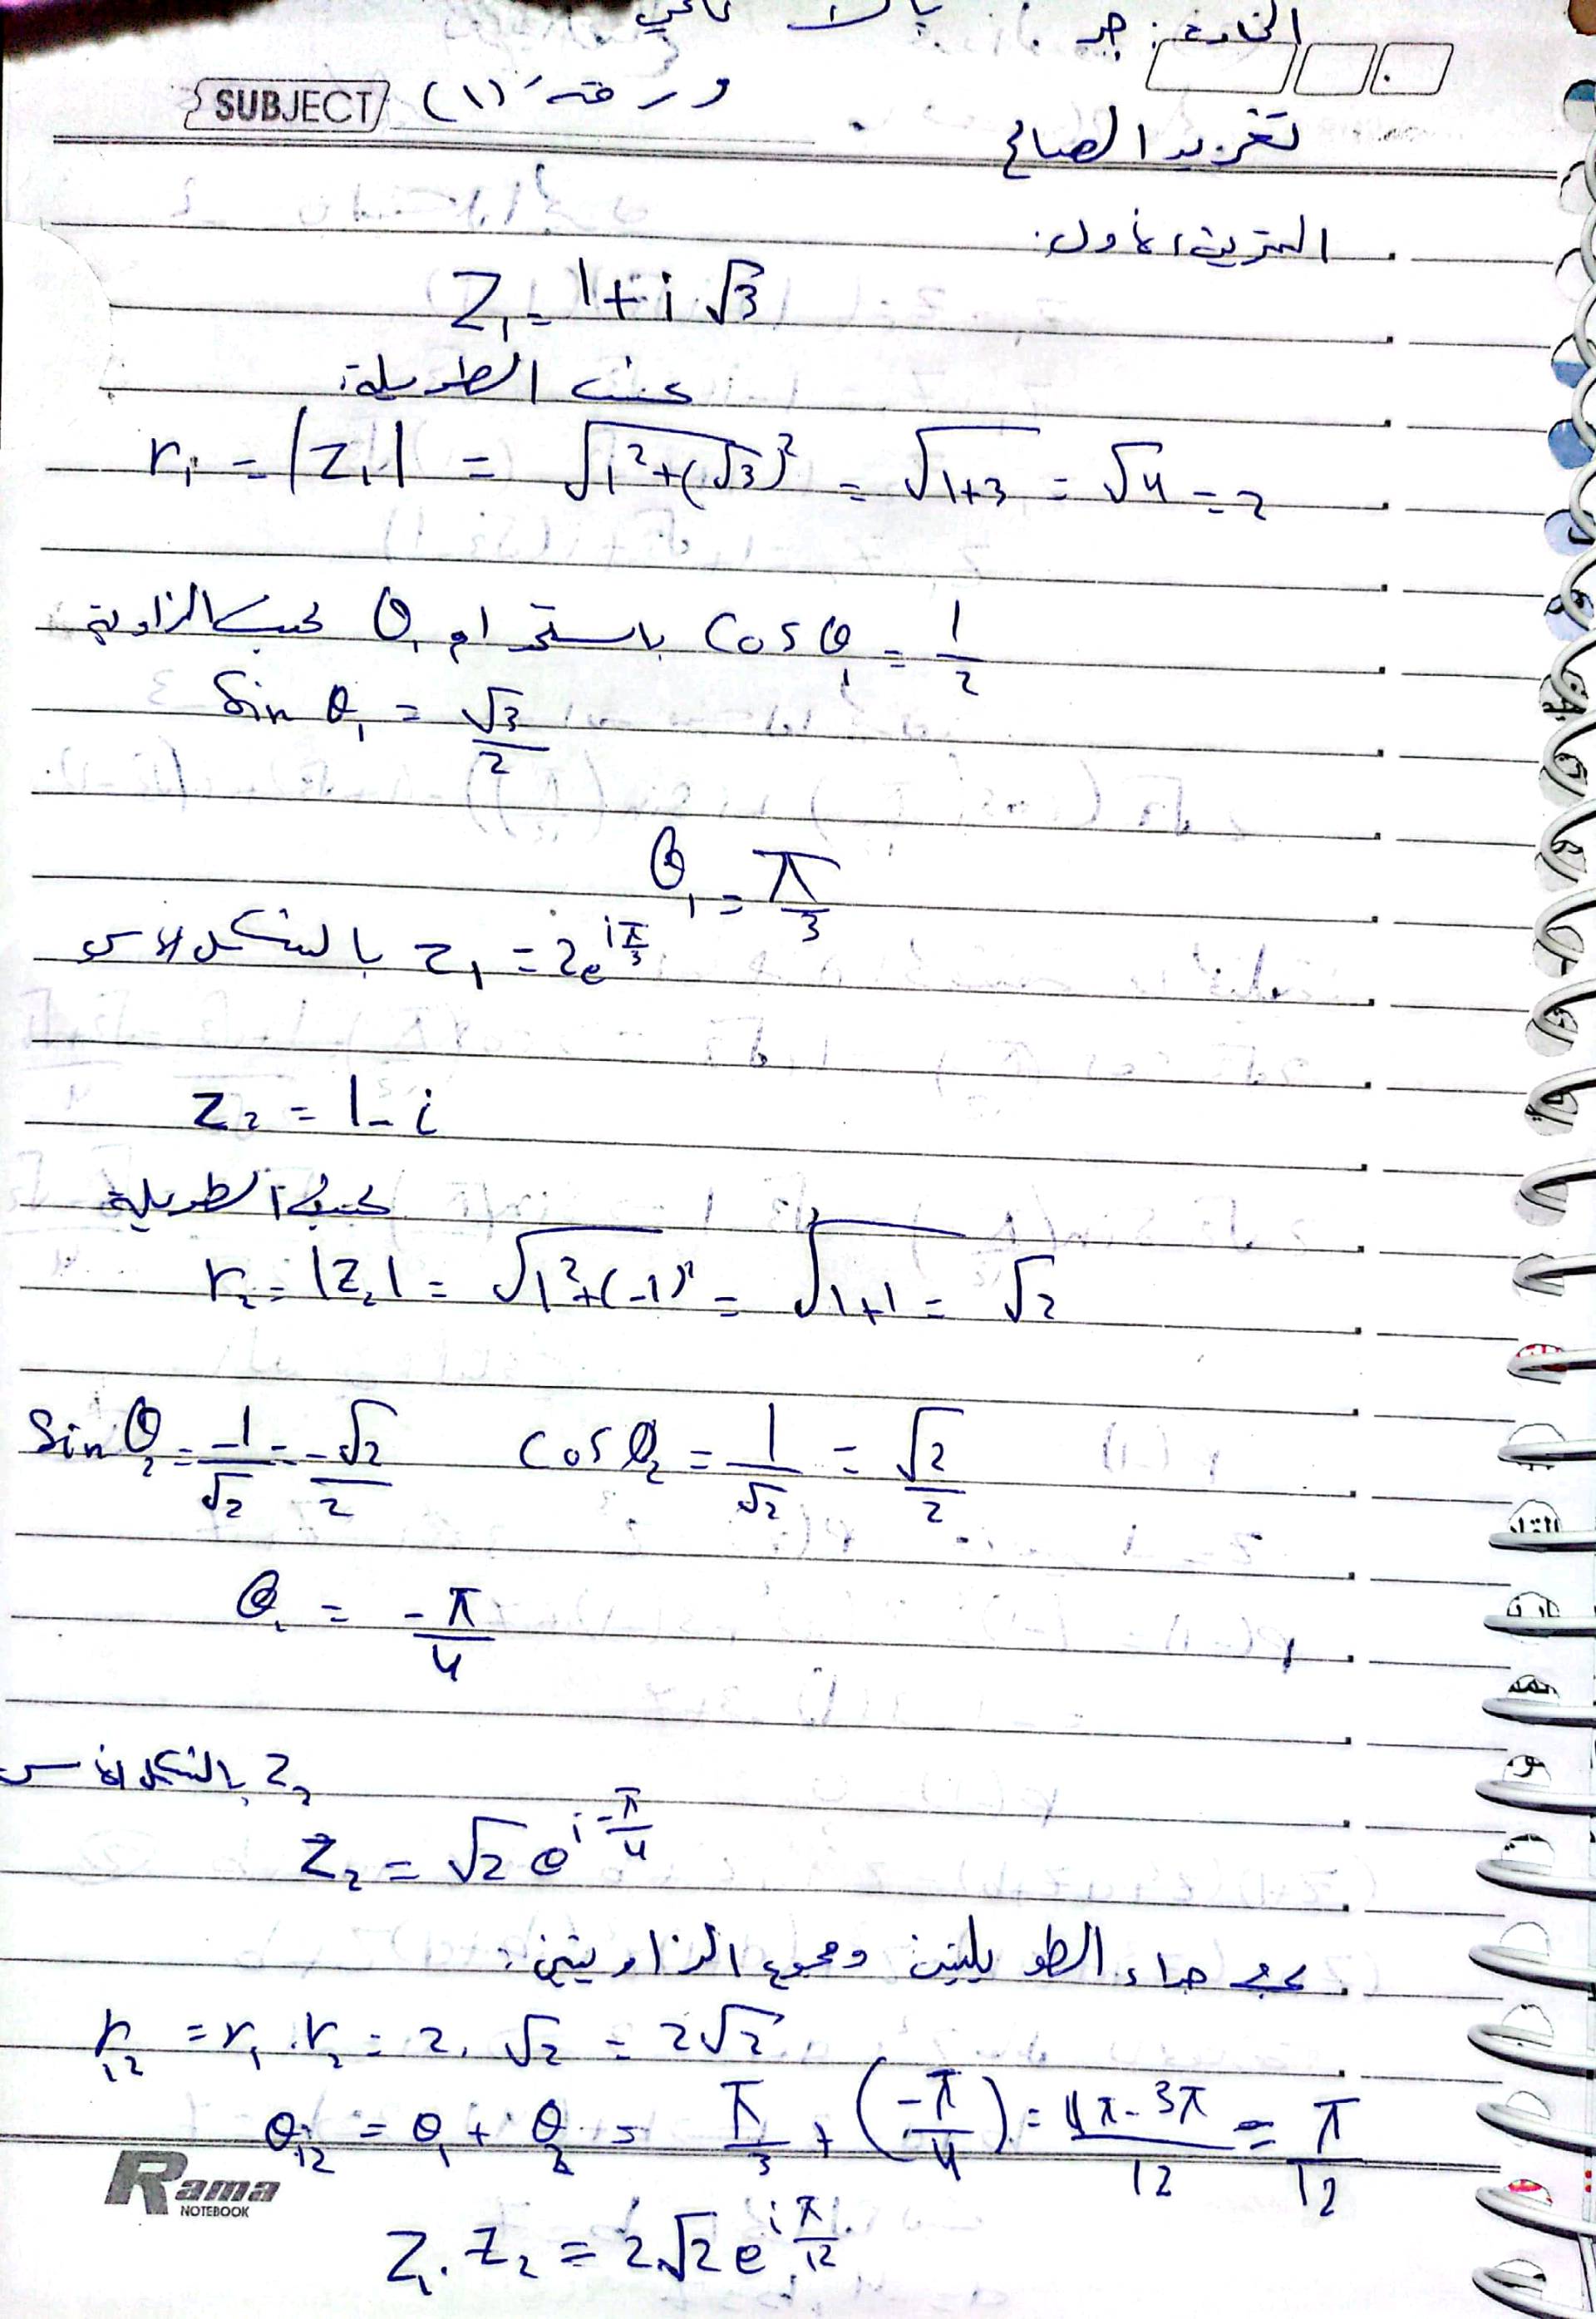 SUBJECT ورقة (١)
تغريد الصباح
التمرين الأول:
Z₁ = 1 + i √3
نحسب الطويلة:
r₁ = |Z₁| = √(1² + (√3)²) = √(1+3) = √4 = 2
نحسب الزاوية θ₁ باستخدام cos θ₁ = 1/2
Sin θ₁ = √3/2
θ₁ = π/3
بالشكل الأسي z₁ = 2e^(i π/3)
Z₂ = 1 - i
نحسب الطويلة
r₂ = |Z₂| = √(1² + (-1)²) = √(1+1) = √2
Sin θ₂ = -1/√2 = -√2/2    cos θ₂ = 1/√2 = √2/2
θ₂ = -π/4
Z₂ بالشكل الأسي
Z₂ = √2 e^(i -π/4)
جداء الطويلتين ومجموع الزاويتين:
r₁₂ = r₁ . r₂ = 2 . √2 = 2√2
θ₁₂ = θ₁ + θ₂ = π/3 + (-π/4) = (4π - 3π)/12 = π/12
Rama
NOTEBOOK
Z₁ . Z₂ = 2√2 e^(i π/12)